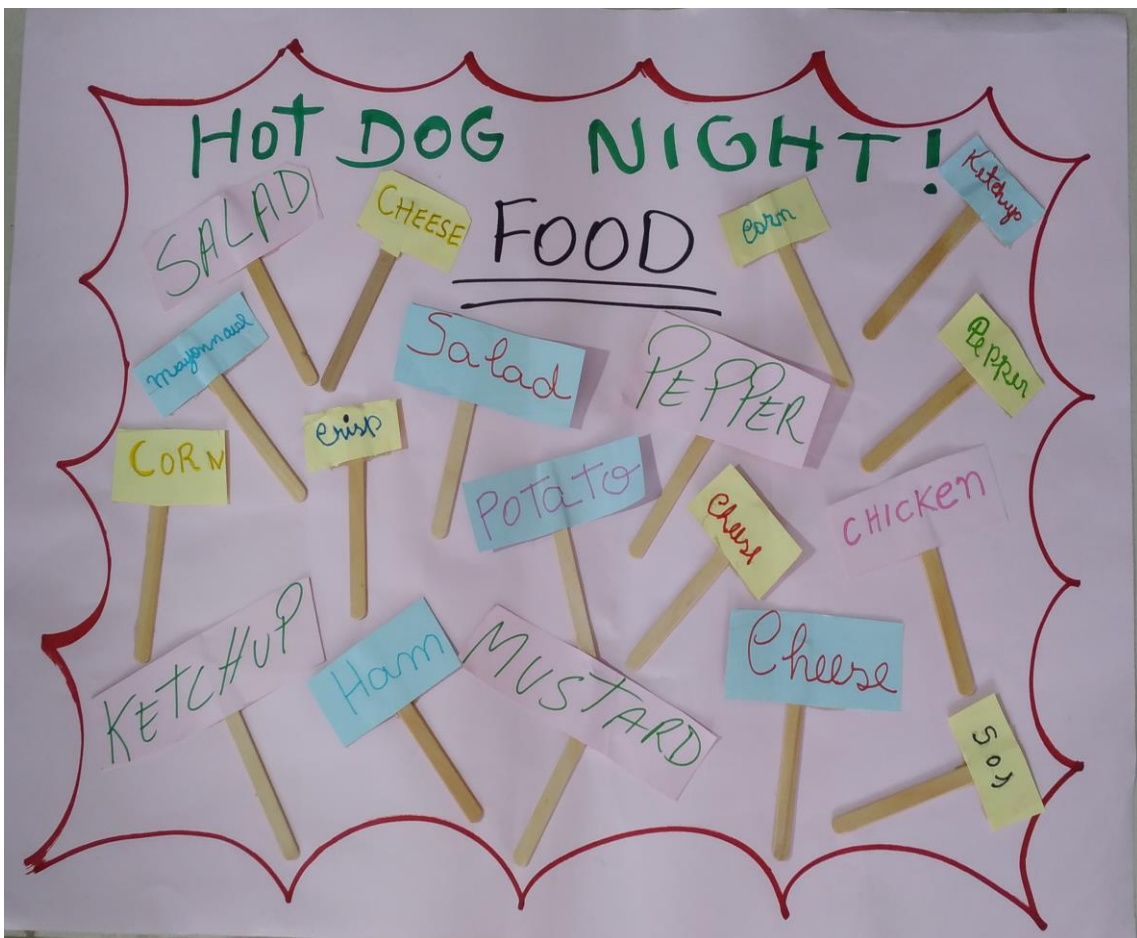 HOT DOG NIGHT!
FOOD
SALAD
CHEESE
corn
Ketchup
Mayonnaise
Salad
PEPPER
Pepper
CORN
crisp
POTATO
cheese
CHICKEN
KETCHUP
Ham
MUSTARD
Cheese
SOS